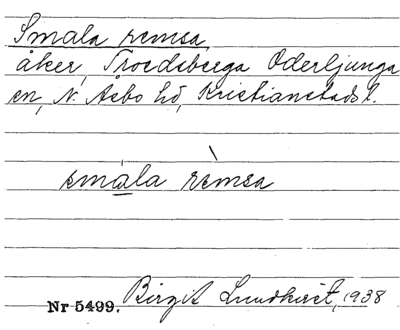 Smala remsa
åker, Troedsberga Oderljunga
sn, N. Åsbo hd, Kristianstads l.
smàla rèmsa
Birgit Lundkvist, 1938
Nr 5499.